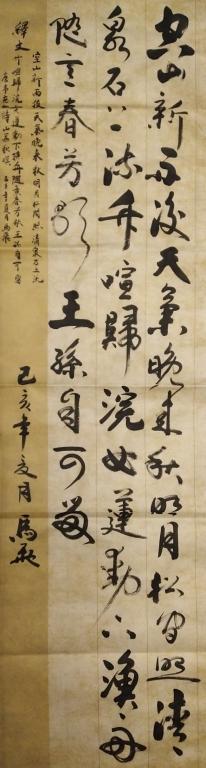 空山新雨後天氣晚来秋明月松間照清
泉石上流竹喧歸浣女蓮動下漁舟
随意春芳歇王孫自可留
己亥年夏月 馬飛
釋文
空山新雨後天氣晚来秋明月松間照清泉石上流
竹喧歸浣女蓮動下漁舟随意春芳歇王孫自可留
山居秋暝 己亥年夏月馬飛